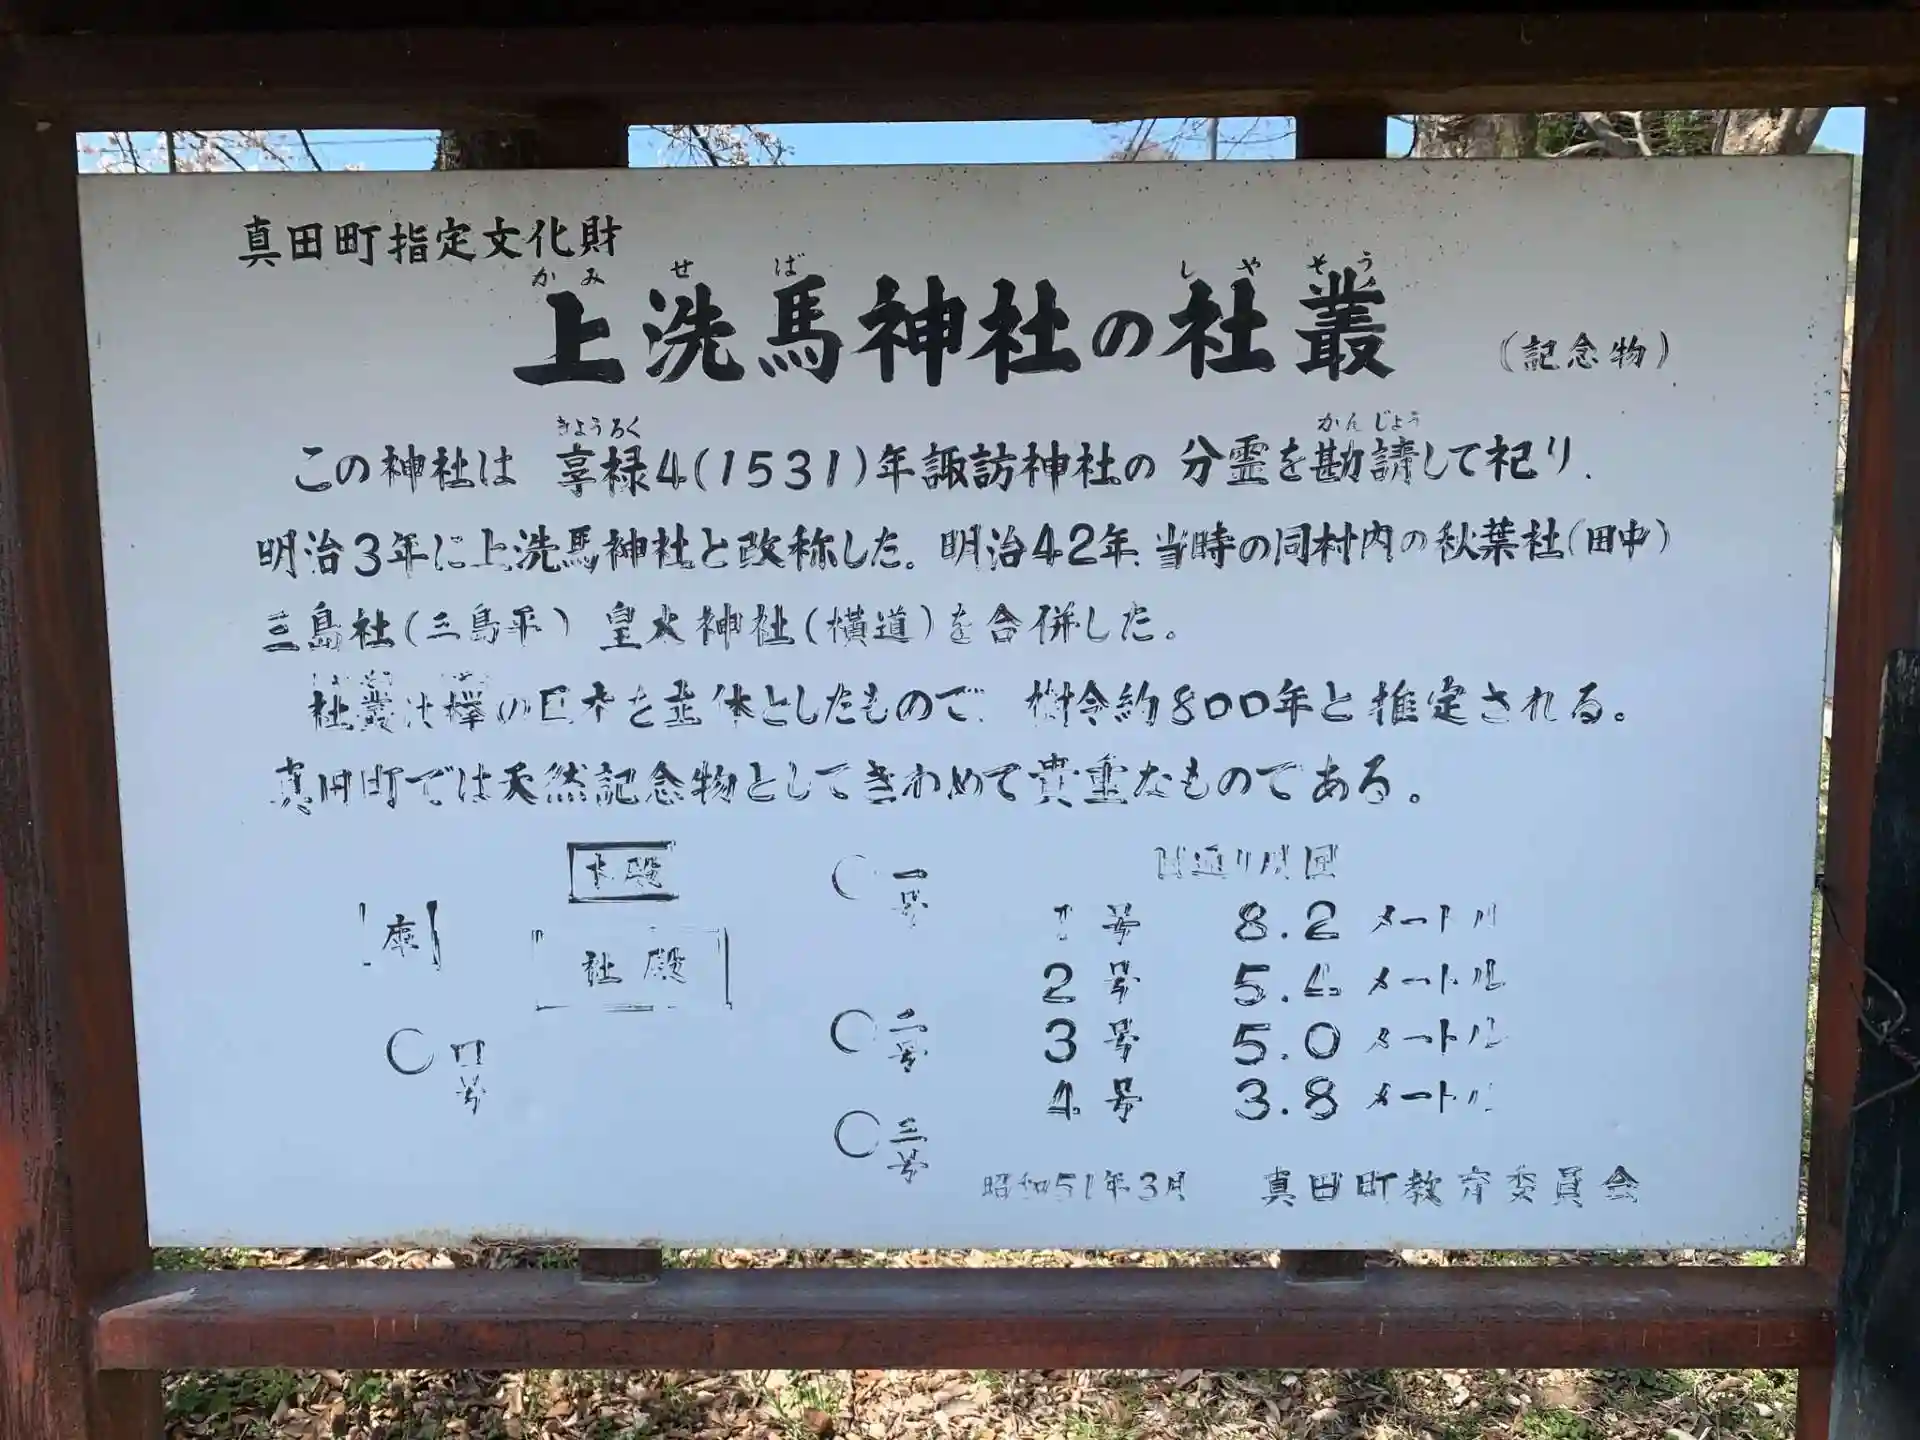 真田町指定文化財
かみ せ ば しゃ そう
上洗馬神社の社叢 (記念物)
きょうろく かんじょう
この神社は 享禄4(1531)年諏訪神社の分霊を勘請して祀り、
明治3年に上洗馬神社と改称した。明治42年、当時の同村内の秋葉社(田中)
三島社(三島平) 皇大神社(横道)を合併した。
社叢は欅の巨木を主体としたもので、樹令約800年と推定される。
真田町では天然記念物としてきわめて貴重なものである。
本殿
社殿
庫
一号
二号
三号
四号
目通り周囲
1号 8.2メートル
2号 5.4メートル
3号 5.0メートル
4号 3.8メートル
昭和51年3月 真田町教育委員会